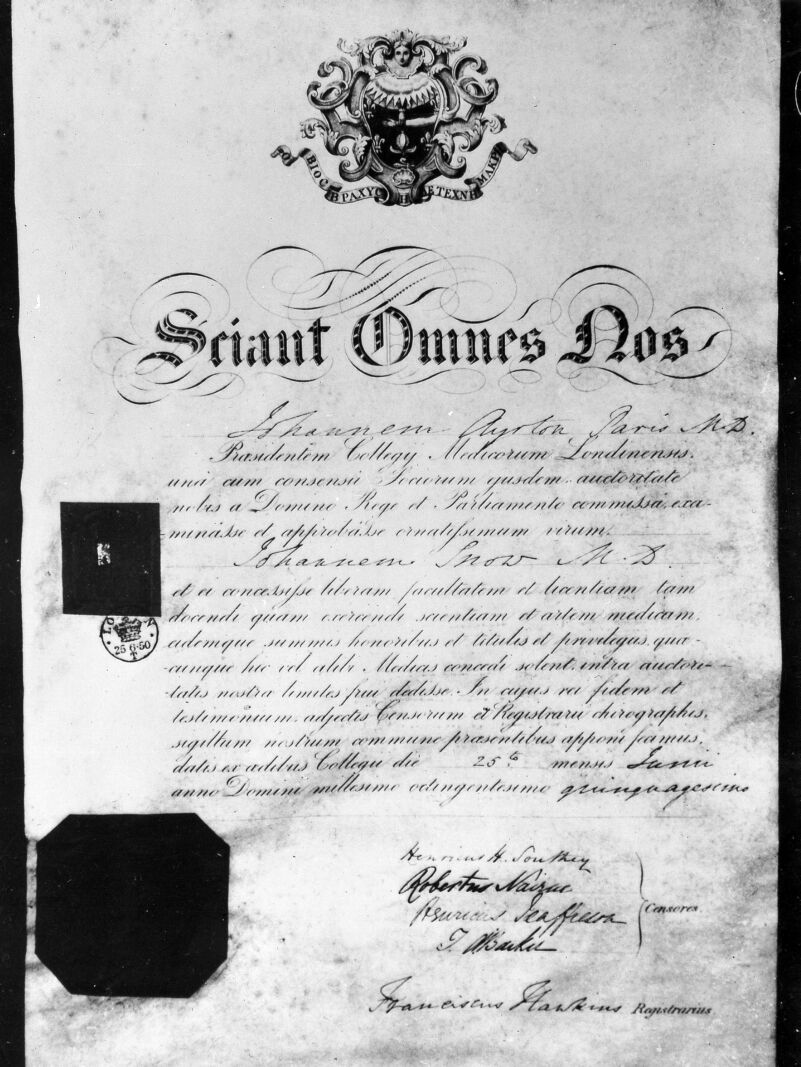 Ο ΒΙΟC ΒΡΑΧΥC Η ΔΕ ΤΕΧΝΗ ΜΑΚΡΗ
Sciant Omnes Nos
Johannem Ayrton Paris M.D.
Præsidentem Collegij Medicorum Londinensis,
unà cum consensu Sociorum ejusdem auctoritate
nobis a Domino Rege et Parliamento commissâ, exa-
minâsse et approbâsse ornatissimum virum,
Johannem Snow M.D.
et ei concessisse liberam facultatem et licentiam tam
docendi quam exercendi scientiam et artem medicam,
eidemque summis honoribus et titulis et privilegiis, quæ-
cunque hic vel alibi Medicis concedi solent, intra auctori-
tatis nostræ limites frui dedisse. In cujus rei fidem et
testimonium, adjectis Censorum et Registrarii chirographis,
sigillum nostrum commune præsentibus apponi fecimus,
datis ex ædibus Collegii die 25to mensis Junii
anno Domini millesimo octingentesimo quinquagesimo
LON
25·6·50
T
Henricus H. Southey
Robertus Nairne
T. A Barker
Censores
Franciscus Hawkins Registrarius